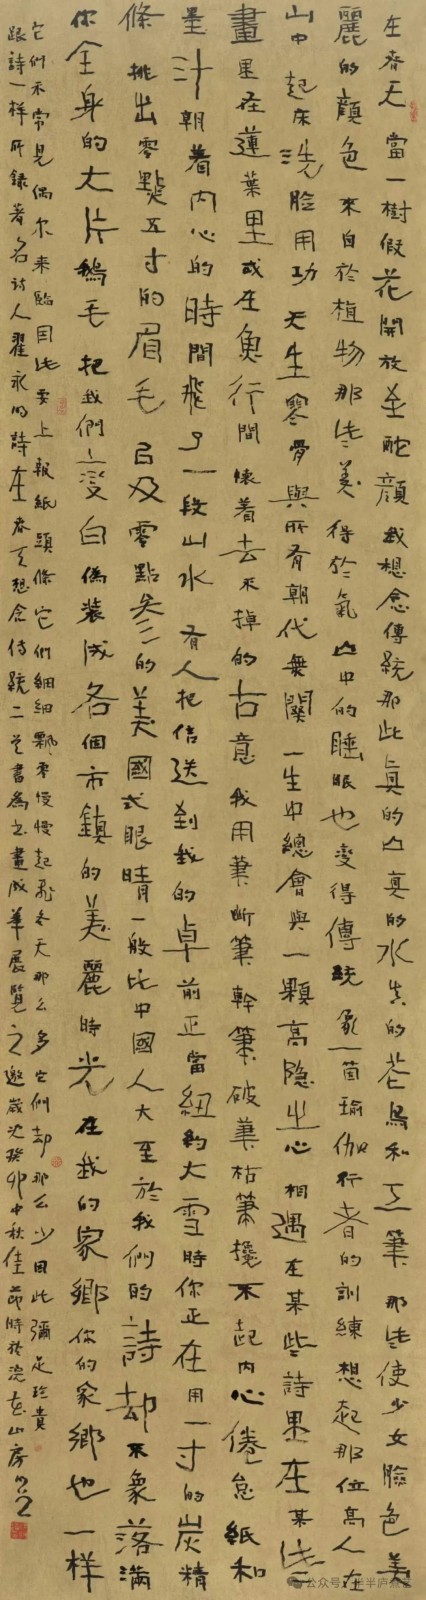 在春天當一樹假花開放至酡顏我想念傳統那些真的山真的水真的花鳥和工筆那些使少女臉色美
麗的顏色來自於植物那些美得於氣山中的睡眠也變得傳統象一箇瑜伽行者的訓練想起那位高人在
山中起床洗臉用功天生寒骨與所有朝代無關一生中總會與一顆高隱之心相遇在某些詩里在某些
畫里在蓮葉里或在魚行間懷着去不掉的古意我用筆斷筆幹筆破筆枯筆擋不起内心倦怠紙和
墨汁朝着内心的時間飛了一段山水有人把信送到我的卓前正當紐約大雪時你正在用一寸的炭精
條挑出零點五寸的眉毛以及零點叁的美國式眼睛一般比中國人大至於我們的詩却不象落滿
你全身的大片鵝毛把我們變白偽裝成各個市鎮的美麗時光在我的家鄉你的家鄉也一样
它们不常見偶尔来臨因此要上報紙頭條它们細細飄零慢慢起飛冬天那么多它们却那么少因此彌足珍貴
跟詩一样所錄著名詩人翟永明詩在春天想念传統二首書為书畫成華展覽之邀歲次癸卯中秋佳節時於浣花山房
公众号